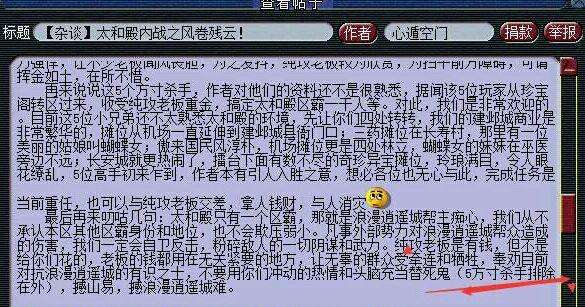 查看帖子
标题 【杂谈】太和殿内战之风卷残云! 作者 心遁空门 捐款 举报
力强悍，让不少老板闻风丧胆，为之发抖，纯玫老板较为欣赏，为扫平前方障碍，可谓
挥金如土，在所不惜。
再来说说这5万寸杀手，作者对他们的资料还不是很熟悉，据闻该5位玩家从珍宝
阁转区过来，收受纯玫老板重金，搞定太和殿区霸一干人等。对此，我们是非常欢迎的
。目前这5位小兄弟还不太熟悉太和殿的环境，先让你们四处转转，我们的建邺城商业是
非常繁华的，摊位从机场一直延伸到建邺城县衙门口；三药摊位在长寿村，那里有一位
美丽的姑娘叫蝴蝶女；傲来国民风淳朴，机场摊位更是四处林立，蝴蝶女的妹妹在巫医
旁边不远；长安城就更热闹了，擂台下面有数不尽的奇珍异宝摊位，玲琅满目，令人眼
花缭乱，5位高手初来乍到，作者本有引人入胜之意，想必各位也无心与此，完成任务是
当前重任，也可以与纯玫老板交差，拿人钱财，与人消灾
最后再来叨咕几句：太和殿只有一个区霸，那就是浪漫逍遥城帮主痴心，我们从不
承认本区其他区霸身份和地位，也不会欺压弱小。凡事外部势力对浪漫逍遥城帮众造成
的伤害，我们一定会自卫反击，粉碎敌人的一切阴谋和武力。纯玫老板是有钱，但不是
给你们花的，老板的钱都用在无关紧要的地方，让无辜的群众受牵连和牺牲，奉劝目前
对抗浪漫逍遥城的有识之士，不要用你们冲动的热情和头脑充当替死鬼（5万寸杀手排除
在外），撼山易，撼浪漫逍遥城难。